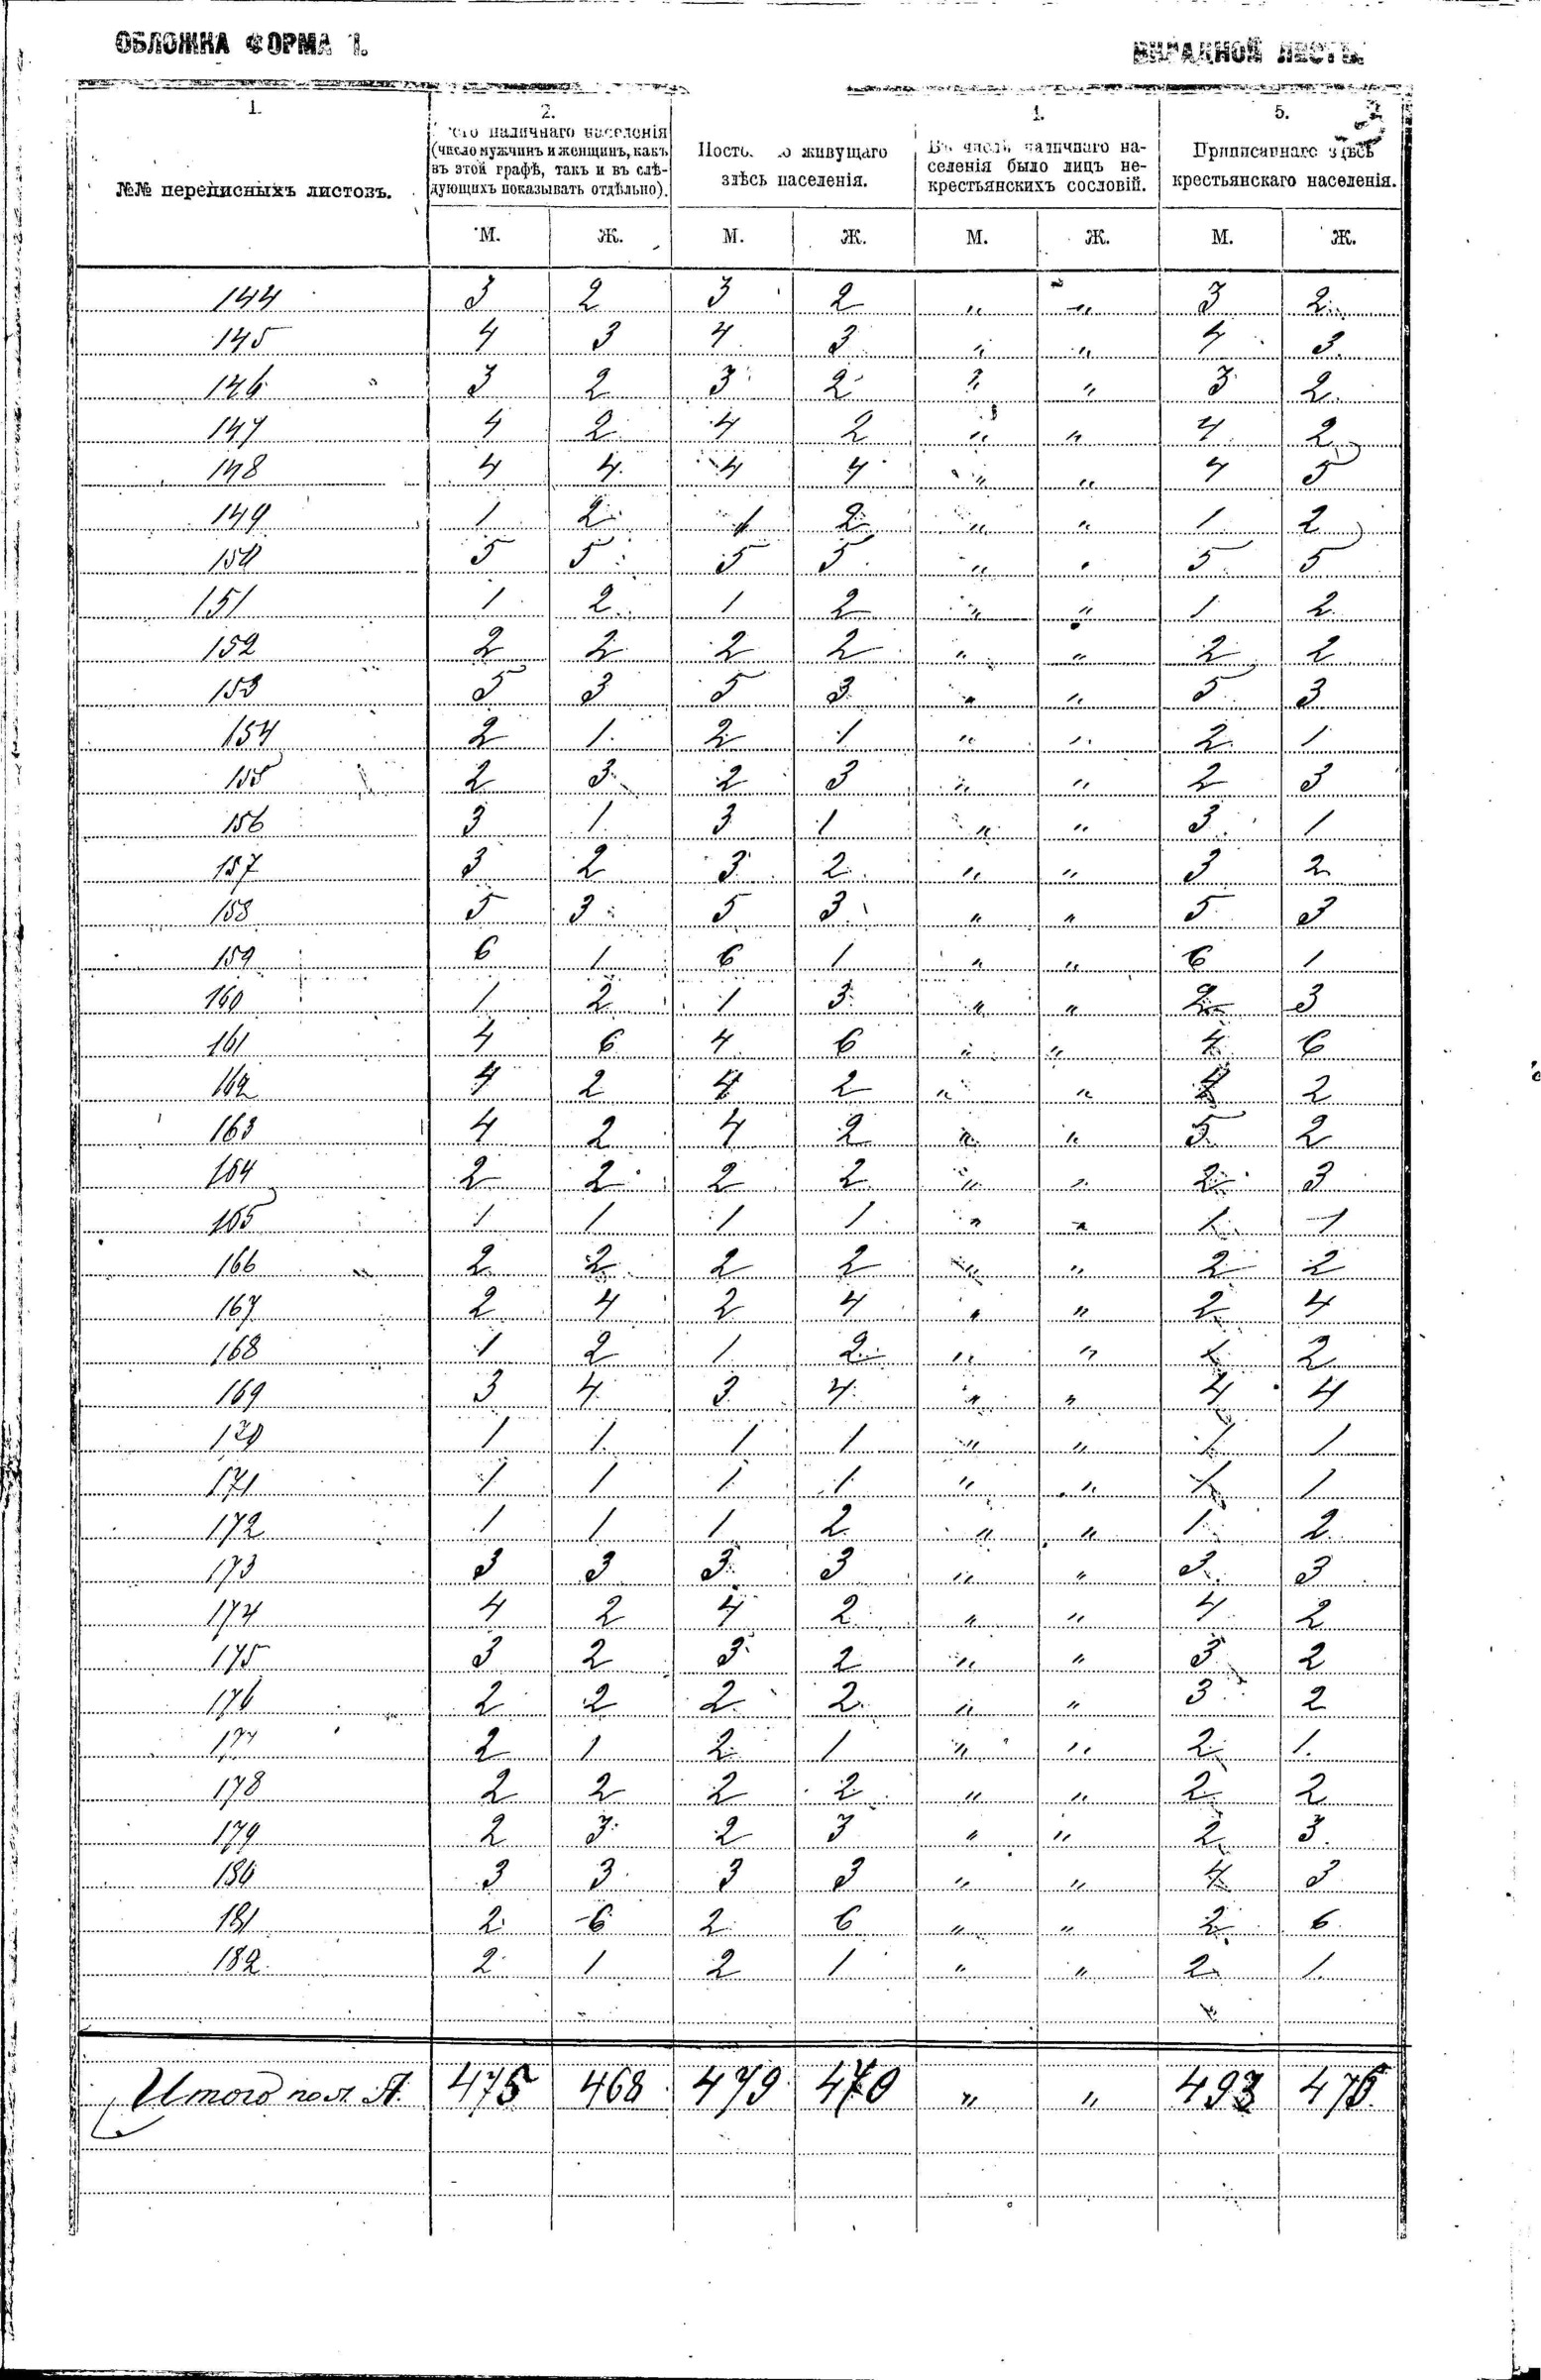 ОБЛОЖКА ФОРМА 1.
1. 2. 5.
№№ переписныхъ листовъ.
наличнаго населенія (число мужчинъ и женщинъ, какъ въ этой графѣ, такъ и въ слѣдующихъ показывать отдѣльно).
живущаго здѣсь населенія.
наличнаго населенія было лицъ некрестьянскихъ сословій.
Приписаннаго здѣсь крестьянскаго населенія.
М. Ж. М. Ж. М. Ж. М. Ж.
144 3 2 3 2 " " 3 2
145 4 3 4 3 " " 4 3
146 3 2 3 2 " " 3 2
147 4 2 4 2 " " 4 2
148 4 4 4 4 " " 4 5
149 1 2 1 2 " " 1 2
150 5 5 5 5 " " 5 5
151 1 2 1 2 " " 1 2
152 2 2 2 2 " " 2 2
153 5 3 5 3 " " 5 3
154 2 1 2 1 " " 2 1
155 2 3 2 3 " " 2 3
156 3 1 3 1 " " 3 1
157 3 2 3 2 " " 3 2
158 5 3 5 3 " " 5 3
159 6 1 6 1 " " 6 1
160 1 2 1 3 " " 2 3
161 4 6 4 6 " " 4 6
162 4 2 4 2 " " 4 2
163 4 2 4 2 " " 5 2
164 2 2 2 2 " " 2 3
165 1 1 1 1 " " 1 1
166 2 2 2 2 " " 2 2
167 2 4 2 4 " " 2 4
168 1 2 1 2 " " 1 2
169 3 4 3 4 " " 4 4
170 1 1 1 1 " " 1 1
171 1 1 1 1 " " 1 1
172 1 1 1 2 " " 1 2
173 3 3 3 3 " " 3 3
174 4 2 4 2 " " 4 2
175 3 2 3 2 " " 3 2
176 2 2 2 2 " " 3 2
177 2 1 2 1 " " 2 1
178 2 2 2 2 " " 2 2
179 2 3 2 3 " " 2 3
180 3 3 3 3 " " 4 3
181 2 6 2 6 " " 2 6
182 2 1 2 1 " " 2 1
Итого по л. А. 475 468 479 470 " " 493 476